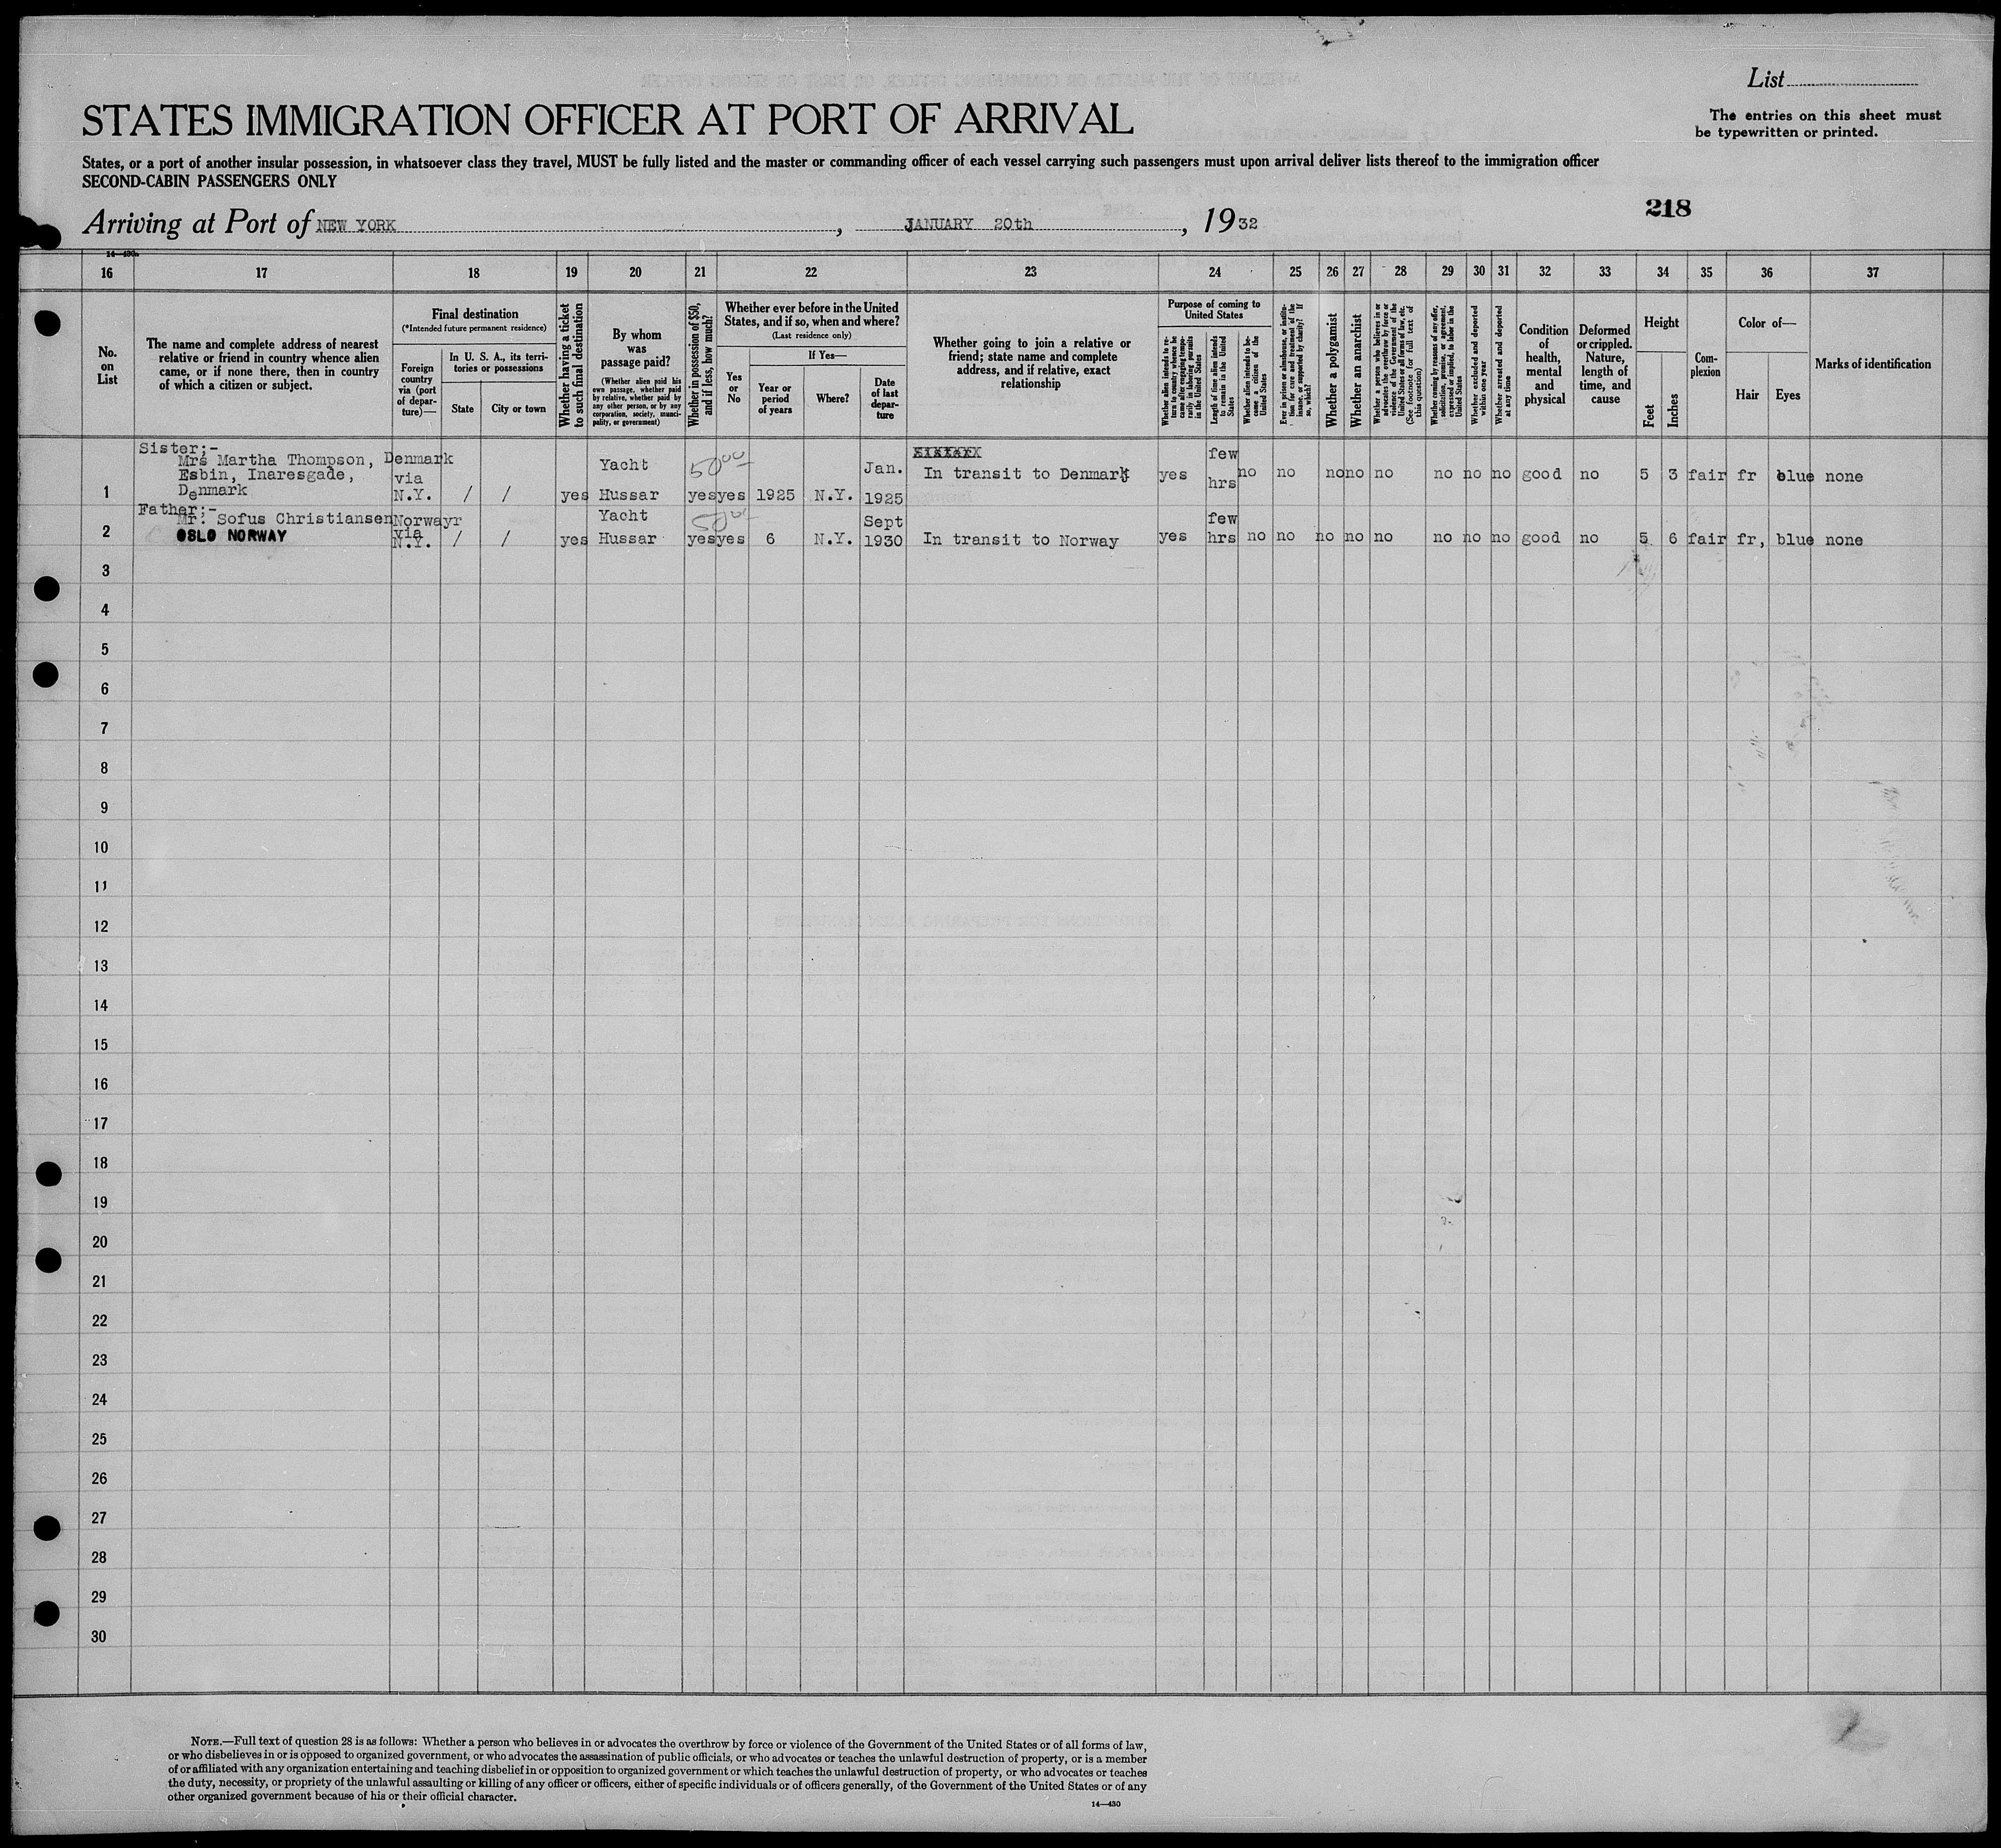 List
STATES IMMIGRATION OFFICER AT PORT OF ARRIVAL
The entries on this sheet must
be typewritten or printed.
States, or a port of another insular possession, in whatsoever class they travel, MUST be fully listed and the master or commanding officer of each vessel carrying such passengers must upon arrival deliver lists thereof to the immigration officer
SECOND-CABIN PASSENGERS ONLY
218
Arriving at Port of NEW YORK, JANUARY 20th, 1932
14—430
16 17 18 19 20 21 22 23 24 25 26 27 28 29 30 31 32 33 34 35 36 37
No.
on
List
The name and complete address of nearest
relative or friend in country whence alien
came, or if none there, then in country
of which a citizen or subject.
Final destination
(*Intended future permanent residence)
Foreign
country
via (port
of depar-
ture)—
In U. S. A., its terri-
tories or possessions
State
City or town
Whether having a ticket
to such final destination
By whom
was
passage paid?
(Whether alien paid his
own passage, whether paid
by relative, whether paid by
any other person, or by any
corporation, society, munici-
pality, or government)
Whether in possession of $50,
and if less, how much?
Whether ever before in the United
States, and if so, when and where?
(Last residence only)
Yes
or
No
If Yes—
Year or
period
of years
Where?
Date
of last
depar-
ture
Whether going to join a relative or
friend; state name and complete
address, and if relative, exact
relationship
Purpose of coming to
United States
Whether alien intends to re-
turn to country whence he
came after engaging tempo-
rarily in laboring pursuits
in the United States
Length of time alien intends
to remain in the United
States
Whether alien intends to be-
come a citizen of the
United States
Ever in prison or almshouse, or institu-
tion for care and treatment of the
insane, or supported by charity? If
so, which?
Whether a polygamist
Whether an anarchist
Whether a person who believes in or
advocates the overthrow by force or
violence of the Government of the
United States or all forms of law, etc.
(See footnote for full text of
this question)
Whether coming by reasons of any offer,
solicitation, promise, or agreement,
expressed or implied, to labor in the
United States
Whether excluded and deported
within one year
Whether arrested and deported
at any time
Condition
of
health,
mental
and
physical
Deformed
or crippled.
Nature,
length of
time, and
cause
Height
Feet
Inches
Com-
plexion
Color of—
Hair
Eyes
Marks of identification
Sister;-
Mrs Martha Thompson, Denmark
Esbin, Inaresgade, via
1 Denmark N.Y. / / yes Yacht Hussar 50 00 yes yes 1925 N.Y. Jan. 1925 In transit to Denmark yes few hrs no no no no no no no no good no 5 3 fair fr blue none
Father;-
Mr. Sofus Christiansen Norwayr
2 OSLO NORWAY via N.Y. / / yes Yacht Hussar 50 yes yes 6 N.Y. Sept 1930 In transit to Norway yes few hrs no no no no no no no no good no 5 6 fair fr, blue none
3
4
5
6
7
8
9
10
11
12
13
14
15
16
17
18
19
20
21
22
23
24
25
26
27
28
29
30
NOTE.—Full text of question 28 is as follows: Whether a person who believes in or advocates the overthrow by force or violence of the Government of the United States or of all forms of law,
or who disbelieves in or is opposed to organized government, or who advocates the assassination of public officials, or who advocates or teaches the unlawful destruction of property, or is a member
of or affiliated with any organization entertaining and teaching disbelief in or opposition to organized government or which teaches the unlawful destruction of property, or who advocates or teaches
the duty, necessity, or propriety of the unlawful assaulting or killing of any officer or officers, either of specific individuals or of officers generally, of the Government of the United States or of any
other organized government because of his or their official character.
14—430